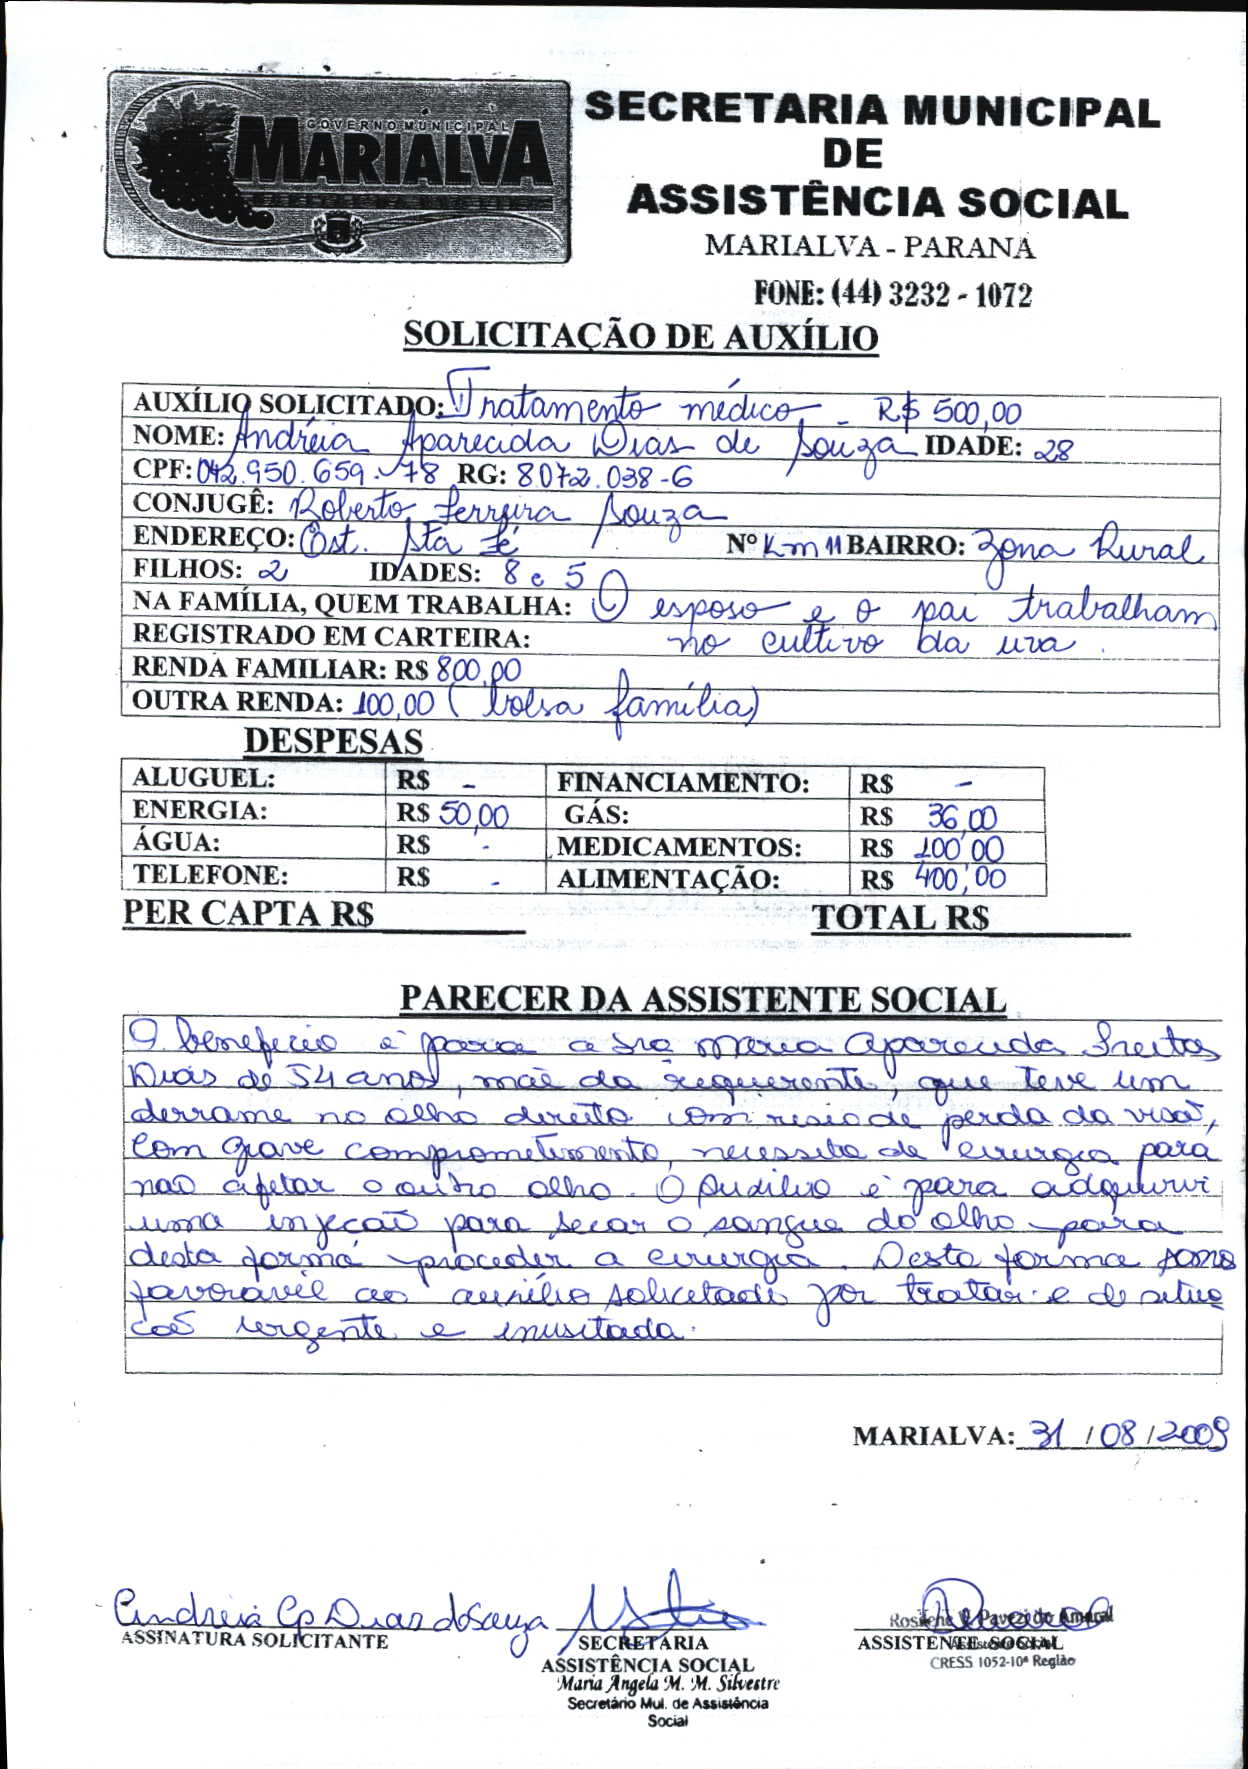 GOVERNO MUNICIPAL
MARIALVA
SECRETARIA MUNICIPAL
DE
ASSISTÊNCIA SOCIAL
MARIALVA - PARANÁ
FONE: (44) 3232 - 1072
SOLICITAÇÃO DE AUXÍLIO
AUXÍLIO SOLICITADO: Tratamento médico - R$ 500,00
NOME: Andréia Aparecida Dias de Souza IDADE: 28
CPF: 042.950.659-78 RG: 8072.038-6
CONJUGÊ: Roberto Ferreira Souza
ENDEREÇO: Est. Sta Fé Nº Km 11 BAIRRO: Zona Rural
FILHOS: 2 IDADES: 8 e 5
NA FAMÍLIA, QUEM TRABALHA: O esposo e o pai trabalham
REGISTRADO EM CARTEIRA: no cultivo da uva.
RENDA FAMILIAR: R$ 800,00
OUTRA RENDA: 100,00 (bolsa família)
DESPESAS
ALUGUEL: R$ - FINANCIAMENTO: R$ -
ENERGIA: R$ 50,00 GÁS: R$ 36,00
ÁGUA: R$ - MEDICAMENTOS: R$ 100,00
TELEFONE: R$ - ALIMENTAÇÃO: R$ 400,00
PER CAPTA R$ TOTAL R$
PARECER DA ASSISTENTE SOCIAL
O beneficio é para a sra Maria Aparecida Freitas
Dias de 54 anos, mãe da requerente, que teve um
derrame no olho direito com risco de perda da visão,
com grave comprometimento, necessita de cirurgia para
não afetar o outro olho. O auxilio é para adquirir
uma injecão para secar o sangue do olho para
desta forma proceder a cirurgia. Desta forma somos
favoravél ao auxílio solicitado por tratar-se de situa
cão urgente e inusitada.
MARIALVA: 31/08/2009
Andreia Ap Dias de Souza
ASSINATURA SOLICITANTE
SECRETARIA
ASSISTÊNCIA SOCIAL
Maria Angela M. M. Silvestre
Secretário Mul. de Assistência
Social
Rosilene V. Pavezi do Amaral
ASSISTENTE SOCIAL
Assistente Social
CRESS 1052-10ª Região